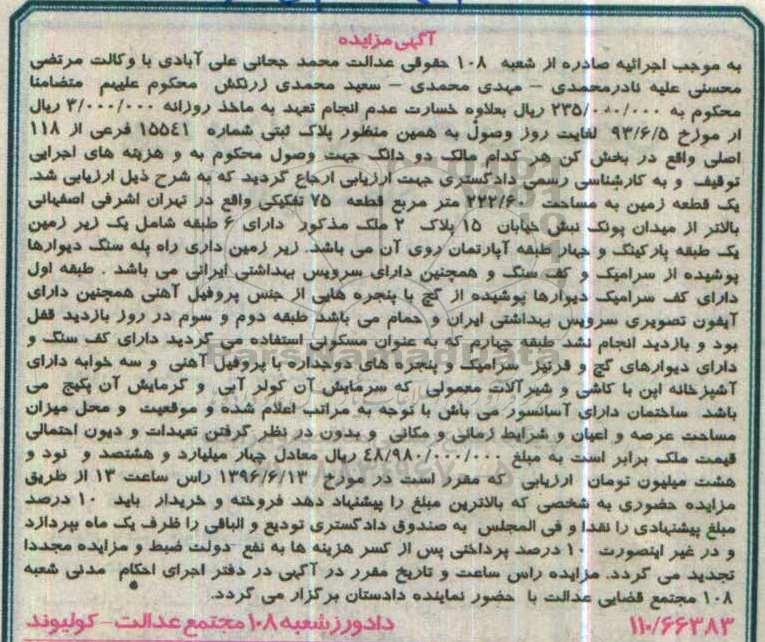 آگهی مزایده
به موجب اجرائیه صادره از شعبه ۱۰۸ حقوقی عدالت محمد جحانی علی آبادی با وکالت مرتضی
محسنی علیه نادرمحمدی – مهدی محمدی – سعید محمدی زرنکش محکوم علیهم متضامنا
محکوم به ۲۳۵/۰۰۰/۰۰۰ ریال بعلاوه خسارت عدم انجام تعهد به ماخذ روزانه ۳/۰۰۰/۰۰۰ ریال
از مورخ ۹۳/۶/۵ لغایت روز وصول به همین منظور پلاک ثبتی شماره ۱۵۵٤۱ فرعی از ۱۱۸
اصلی واقع در بخش کن هر کدام مالک دو دانگ جهت وصول محکوم به و هزینه های اجرایی
توقیف و به کارشناسی رسمی دادگستری جهت ارزیابی ارجاع گردید که به شرح ذیل ارزیابی شد.
یک قطعه زمین به مساحت ۲۲۲/۶۰ متر مربع قطعه ۷۵ تفکیکی واقع در تهران اشرفی اصفهانی
بالاتر از میدان پونک نبش خیابان ۱۵ پلاک ۲ ملک مذکور دارای ۶ طبقه شامل یک زیر زمین
یک طبقه پارکینگ و چهار طبقه آپارتمان روی آن می باشد. زیر زمین داری راه پله سنگ دیوارها
پوشیده از سرامیک و کف سنگ و همچنین دارای سرویس بهداشتی ایرانی می باشد . طبقه اول
دارای کف سرامیک دیوارها پوشیده از گچ با پنجره هایی از جنس پروفیل آهنی همچنین دارای
آیفون تصویری سرویس بهداشتی ایران و حمام می باشد طبقه دوم و سوم در روز بازدید قفل
بود و بازدید انجام نشد طبقه چهارم که به عنوان مسکونی استفاده می گردید دارای کف سنگ و
دارای دیوارهای گچ و قرنیز سرامیک و پنجره های دوجداره با پروفیل آهنی و سه خوابه دارای
آشپزخانه اپن با کاشی و شیرآلات معمولی که سرمایش آن کولر آبی و گرمایش آن پکیج می
باشد ساختمان دارای آسانسور می باش با توجه به مراتب اعلام شده و موقعیت و محل میزان
مساحت عرصه و اعیان و شرایط زمانی و مکانی و بدون در نظر گرفتن تعهدات و دیون احتمالی
قیمت ملک برابر است به مبلغ ٤۸/۹۸۰/۰۰۰/۰۰۰ ریال معادل چهار میلیارد و هشتصد و نود و
هشت میلیون تومان ارزیابی که مقرر است در مورخ ۱۳۹۶/۶/۱۳ راس ساعت ۱۳ از طریق
مزایده حضوری به شخصی که بالاترین مبلغ را پیشنهاد دهد فروخته و خریدار باید ۱۰ درصد
مبلغ پیشنهادی را نقدا و فی المجلس به صندوق دادگستری تودیع و الباقی را ظرف یک ماه بپردازد
و در غیر اینصورت ۱۰ درصد پرداختی پس از کسر هزینه ها به نفع دولت ضبط و مزایده مجددا
تجدید می گردد. مزایده راس ساعت و تاریخ مقرر در آگهی در دفتر اجرای احکام مدنی شعبه
۱۰۸ مجتمع قضایی عدالت با حضور نماینده دادستان برگزار می گردد.
۱۱۰/۶۶۳۸۳ دادورز شعبه ۱۰۸ مجتمع عدالت – کولیوند
ParsNamadData